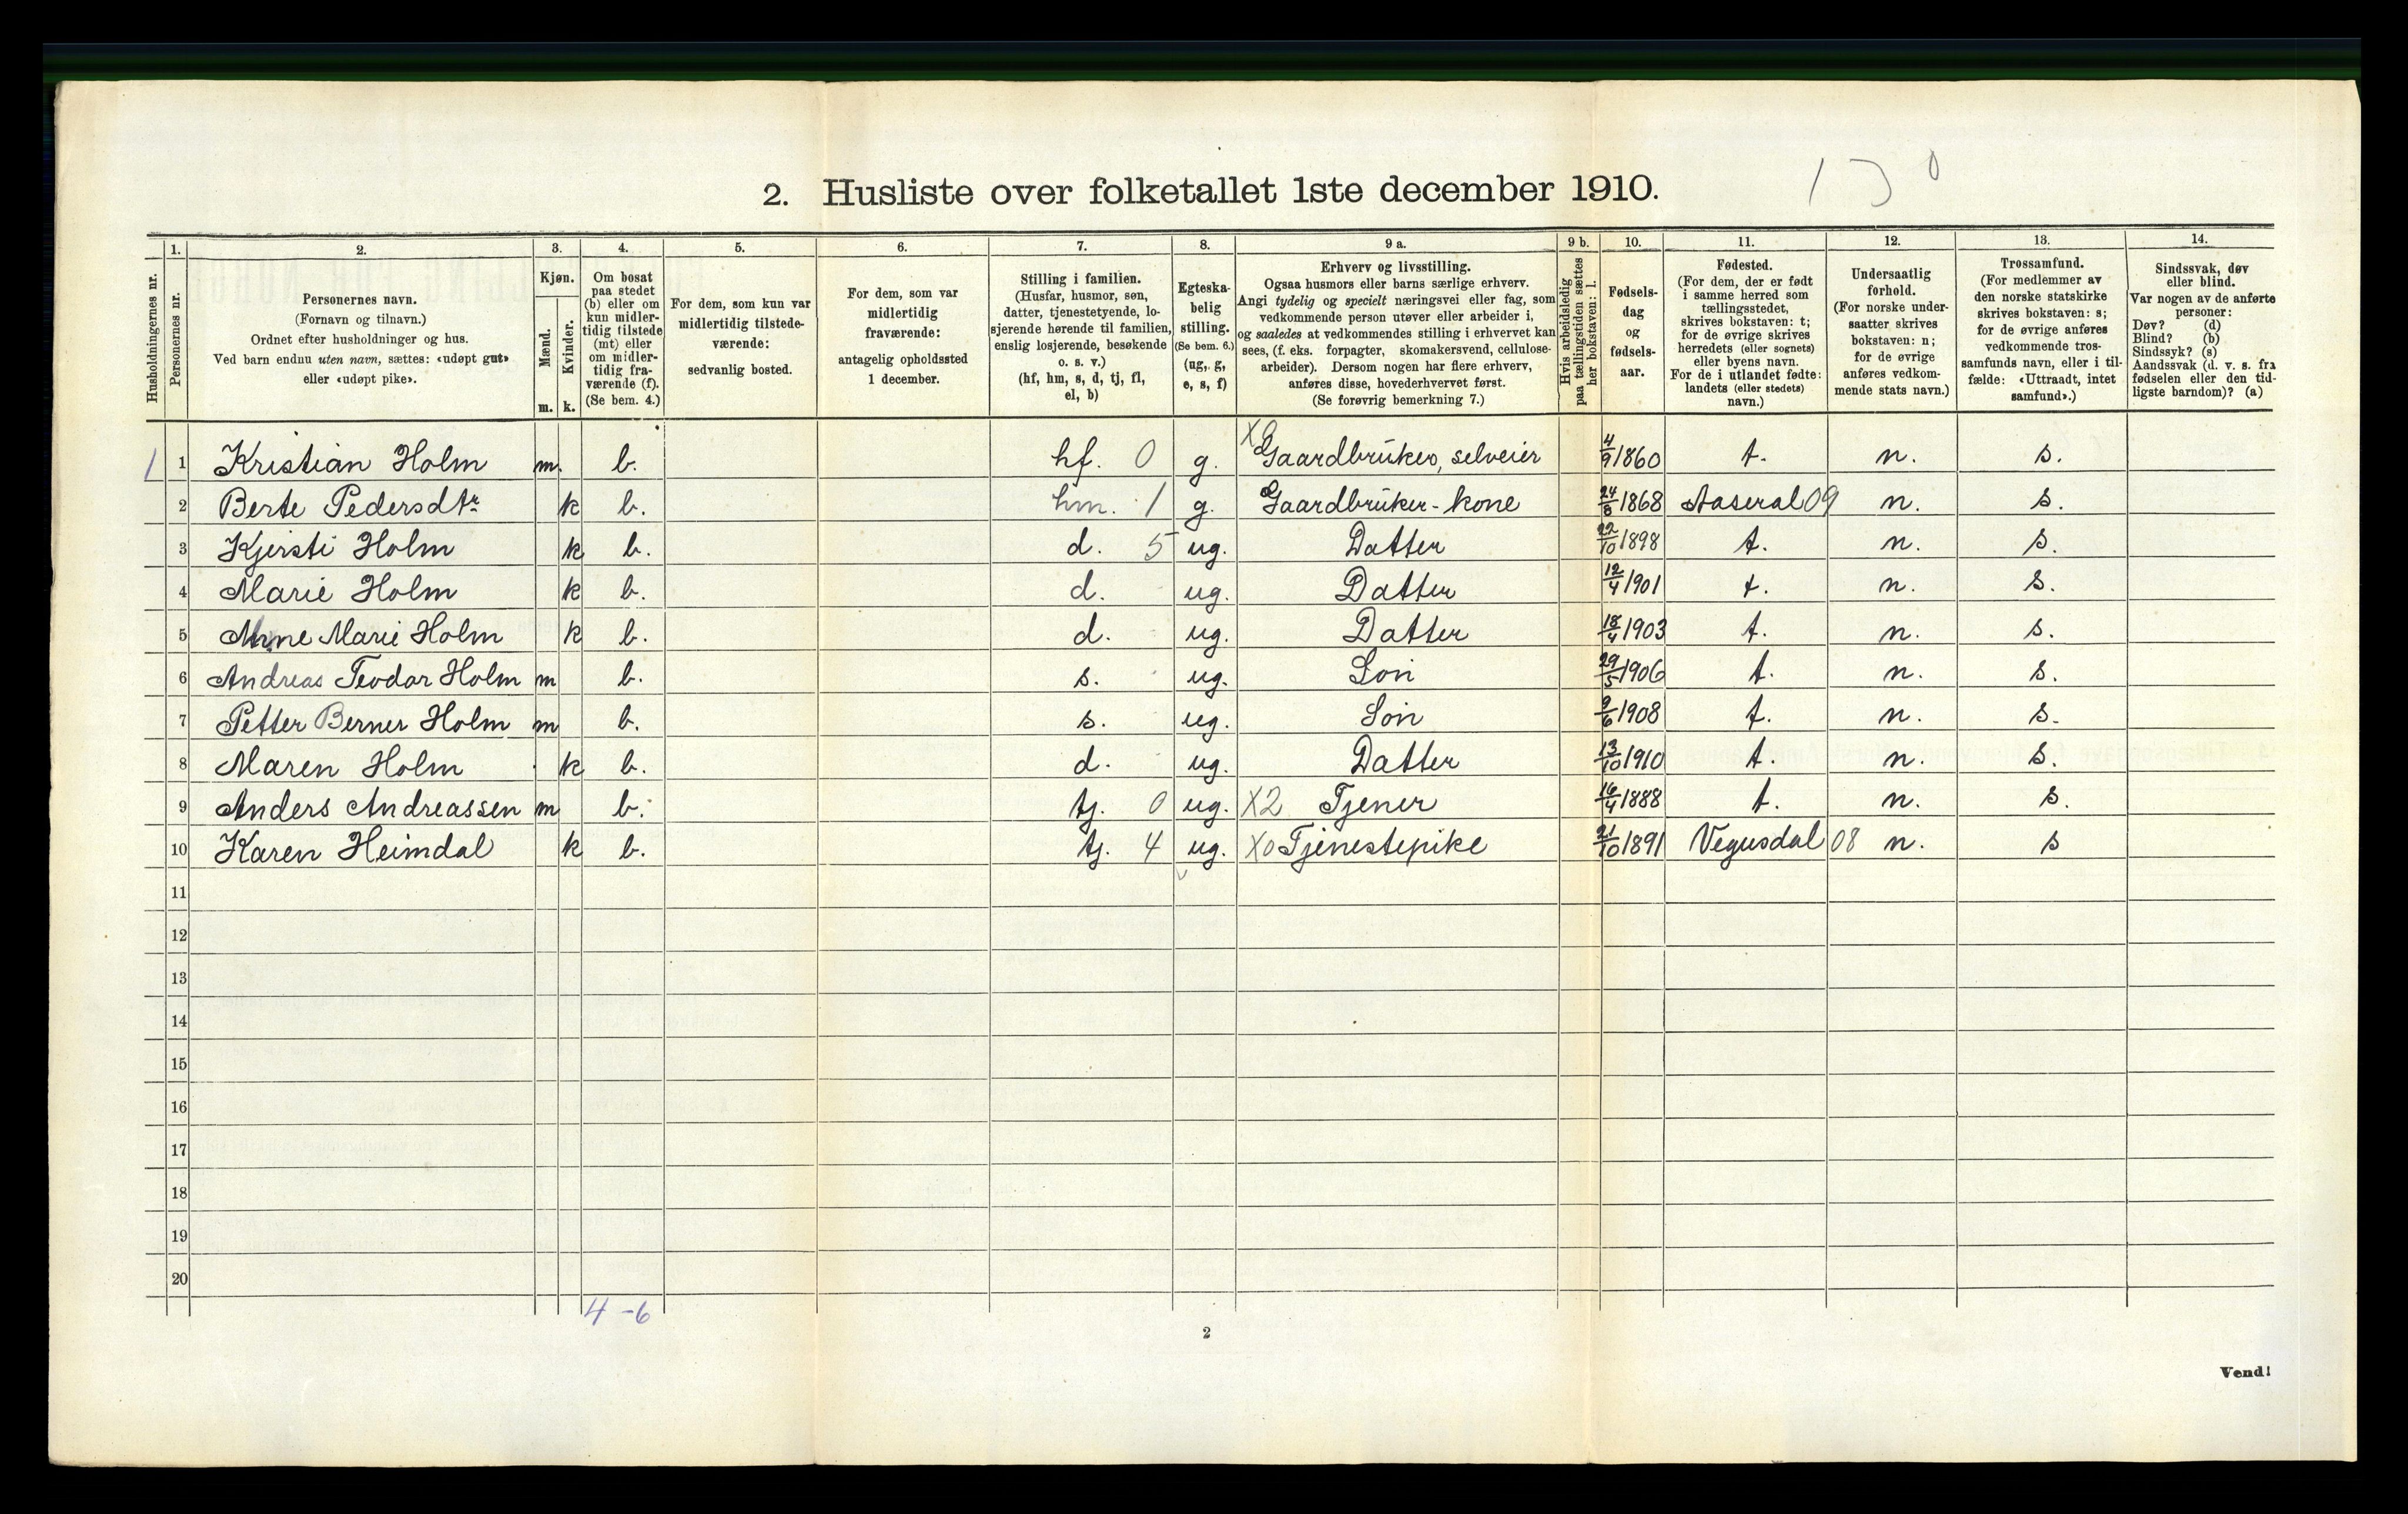 130
2. Husliste over folketallet 1ste december 1910.
Husholdningernes nr.
1.
Personernes nr.
2.
Personernes navn.
(Fornavn og tilnavn.)
Ordnet efter husholdninger og hus.
Ved barn endnu uten navn, sættes: «udøpt gut»
eller «udøpt pike».
3.
Kjøn.
Mænd.
m.
Kvinder.
k.
4.
Om bosat
paa stedet
(b) eller om
kun midler-
tidig tilstede
(mt) eller
om midler-
tidig fra-
værende (f).
(Se bem. 4.)
5.
For dem, som kun var
midlertidig tilstede-
værende:
sedvanlig bosted.
6.
For dem, som var
midlertidig
fraværende:
antagelig opholdssted
1 december.
7.
Stilling i familien.
(Husfar, husmor, søn,
datter, tjenestetyende, lo-
sjerende hørende til familien,
enslig losjerende, besøkende
o. s. v.)
(hf, hm, s, d, tj, fl,
el, b)
8.
Egteska-
belig
stilling.
(Se bem. 6.)
(ug, g,
e, s, f)
9 a.
Erhverv og livsstilling.
Ogsaa husmors eller barns særlige erhverv.
Angi tydelig og specielt næringsvei eller fag, som
vedkommende person utøver eller arbeider i,
og saaledes at vedkommendes stilling i erhvervet kan
sees, (f. eks. forpagter, skomakersvend, cellulose-
arbeider). Dersom nogen har flere erhverv,
anføres disse, hovederhvervet først.
(Se forøvrig bemerkning 7.)
9 b.
Hvis arbeidsledig
paa tællingstiden sættes
her bokstaven: l.
10.
Fødsels-
dag
og
fødsels-
aar.
11.
Fødested.
(For dem, der er født
i samme herred som
tællingsstedet,
skrives bokstaven: t;
for de øvrige skrives
herredets (eller sognets)
eller byens navn.
For de i utlandet fødte:
landets (eller stedets)
navn.)
12.
Undersaatlig
forhold.
(For norske under-
saatter skrives
bokstaven: n;
for de øvrige
anføres vedkom-
mende stats navn.)
13.
Trossamfund.
(For medlemmer av
den norske statskirke
skrives bokstaven: s;
for de øvrige anføres
vedkommende tros-
samfunds navn, eller i til-
fælde: «Uttraadt, intet
samfund».)
14.
Sindssvak, døv
eller blind.
Var nogen av de anførte
personer:
Døv? (d)
Blind? (b)
Sindssyk? (s)
Aandssvak (d. v. s. fra
fødselen eller den tid-
ligste barndom)? (a)
1 1 Kristian Holm m. b. hf. 0 g. X0 Gaardbruker, selveier 4/9 1860 t. n. s.
2 Berte Pedersdtr k b. hm. 1 g. Gaardbruker-kone 24/8 1868 Aaseral 09 n. s.
3 Kjersti Holm k b. d. 5 ug. Datter 22/10 1898 t. n. s.
4 Marie Holm k b. d. ug. Datter 12/4 1901 t. n. s.
5 Anne Marie Holm k b. d. ug. Datter 18/4 1903 t. n. s.
6 Andreas Teodor Holm m b. s. ug. Søn 29/5 1906 t. n. s.
7 Petter Berner Holm m b. s. ug. Søn 9/6 1908 t. n. s.
8 Maren Holm k b. d. ug. Datter 13/10 1910 t. n. s.
9 Anders Andreassen m b. tj. 0 ug. X2 Tjener 16/4 1888 t. n. s.
10 Karen Heimdal k b. tj. 4 ug. X0 Tjenestepike 21/10 1891 Vegusdal 08 n. s
11
12
13
14
15
16
17
18
19
20
4-6
2
Vend!